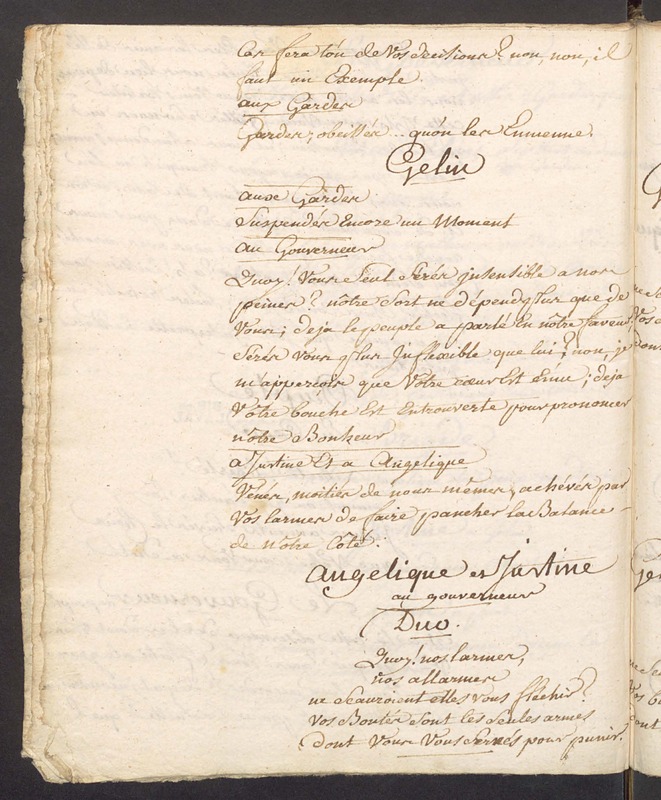 Cas fera t'on de Vos décisions? non, non, il
faut un Exemple.
aux Gardes
Gardes, obeïssés ... qu'on les Emmenne.
Gelin
aux Gardes
Suspendés Encore un Moment
au Gouverneur
Quoy! Vous Seul Serés jnsensible a nos
peines? nôtre Sort ne dépend plus que de
Vous; deja le peuple a parlé En nôtre faveur,
Serés vous plus Jnflexible que lui? non, je
m'apperçois que Vôtre cœur Est Emu; deja
Votre bouche Est Entrouverte pour prononcer
nôtre Bonheur
a Justine Et a Angelique
Venés, moitiés de nous mêmes, achévés par
Vos larmes de faire pancher la Balance
de nôtre Côté.
Angelique et Justine
au gouverneur
Duo.
Quoy! nos larmes,
nos allarmes
ne Sauroient elles vous fléchir?
Vos Bontés Sont les Seules armes
Dont Vous Vous Servés pour punir.